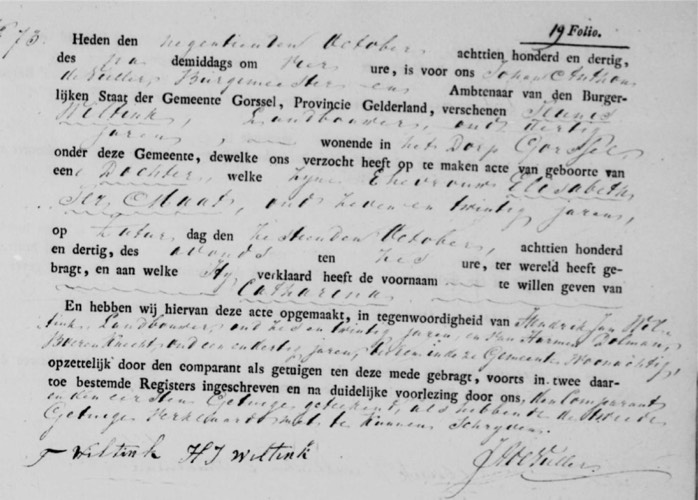 No 73.
19 Folio.
Heden den negentienden October achttien honderd en dertig,
des na demiddags om vier ure, is voor ons Johan Anthon
de Vulder Burgemeester en Ambtenaar van den Burger-
lijken Staat der Gemeente Gorssel, Provincie Gelderland, verschenen Teunis
Wiltink, Landbouwer, oud dertig
jaren, wonende in het Dorp Gorssel
onder deze Gemeente, dewelke ons verzocht heeft op te maken acte van geboorte van
eene Dochter, welke zyne Ehevrouw Elisabeth
ter Maat, oud zeven en twintig jaren,
op Zatur dag den zestienden October, achttien honderd
en dertig, des avonds ten zes ure, ter wereld heeft ge-
bragt, en aan welke Hy verklaard heeft de voornaam te willen geven van
Catharina
En hebben wij hiervan deze acte opgemaakt, in tegenwoordigheid van Hendrik Jan Wil-
tink, Landbouwer, oud zes en twintig jaren, en Jan Harmen Dolman,
Boeren Knecht, oud een en dertig jaren, beiden in deze Gemeente woonachtig,
opzettelijk door den comparant als getuigen ten deze mede gebragt, voorts in twee daar-
toe bestemde Registers ingeschreven en na duidelijke voorlezing door ons, den Comparant
en den eersten Getuige geteekent, als hebbende de tweede
Getuige verklaard niet te kunnen schryven.
T Wiltink H J Wiltink